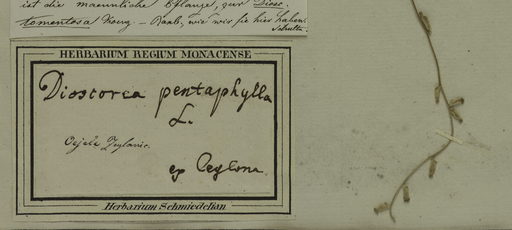 ist die maennliche Pflanze, zur Diosc.
tomentosa Koenig — Raab, wie wir sie hier haben.
Schultes.
HERBARIUM REGIUM MONACENSE
Dioscorea pentaphylla
L.
Zeylanic.
ex Ceylona
Herbarium Schmiedelian